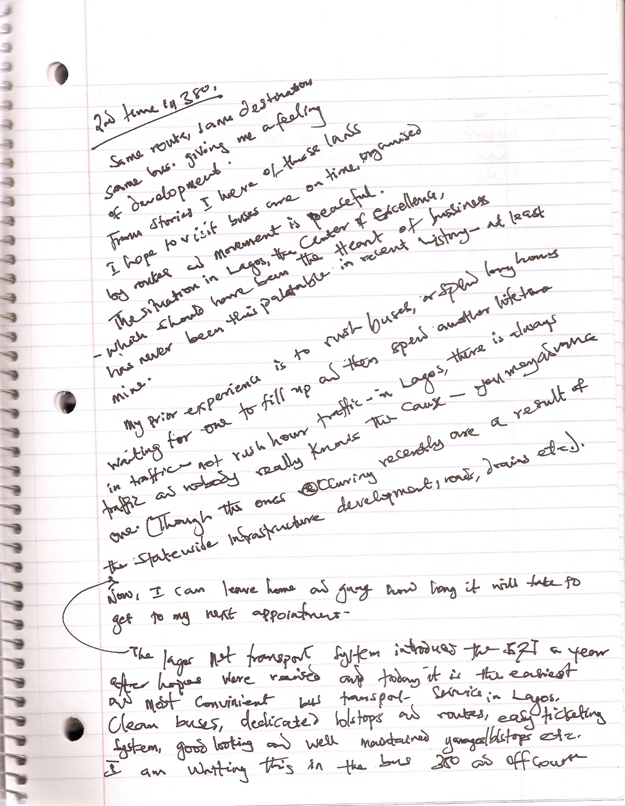 2nd time in 380.
Same route, same destination
same bus. giving me a feeling
of development.
From stories I here of those lands
I hope to visit buses are on time, organised
by routes and movement is peaceful.
The situation in Lagos, the Center of Excellence,
- which should have been the Heart of business
has never been this palatable in recent history - at least
mine.
My prior experience is to rush buses, or spend long hours
waiting for one to fill up and then spend another lifetime
in traffic - not rush hour traffic - in Lagos, there is always
traffic and nobody really knows the cause - you may advance
one. (Though the ones occuring recently are a result of
the statewide infrastructure development, roads, drains etc.).
Now, I can leave home and how long it will take to
get to my next appointment -
The lagos transport system introduced the a year
after hopes were raised and today it is the easiest
and most convinient bus transport service in Lagos.
Clean buses, dedicated b/stops and routes, easy ticketing
system, good looking and well maintained garages/b/stops etc.
I am writting this in the bus 380 and offcourse